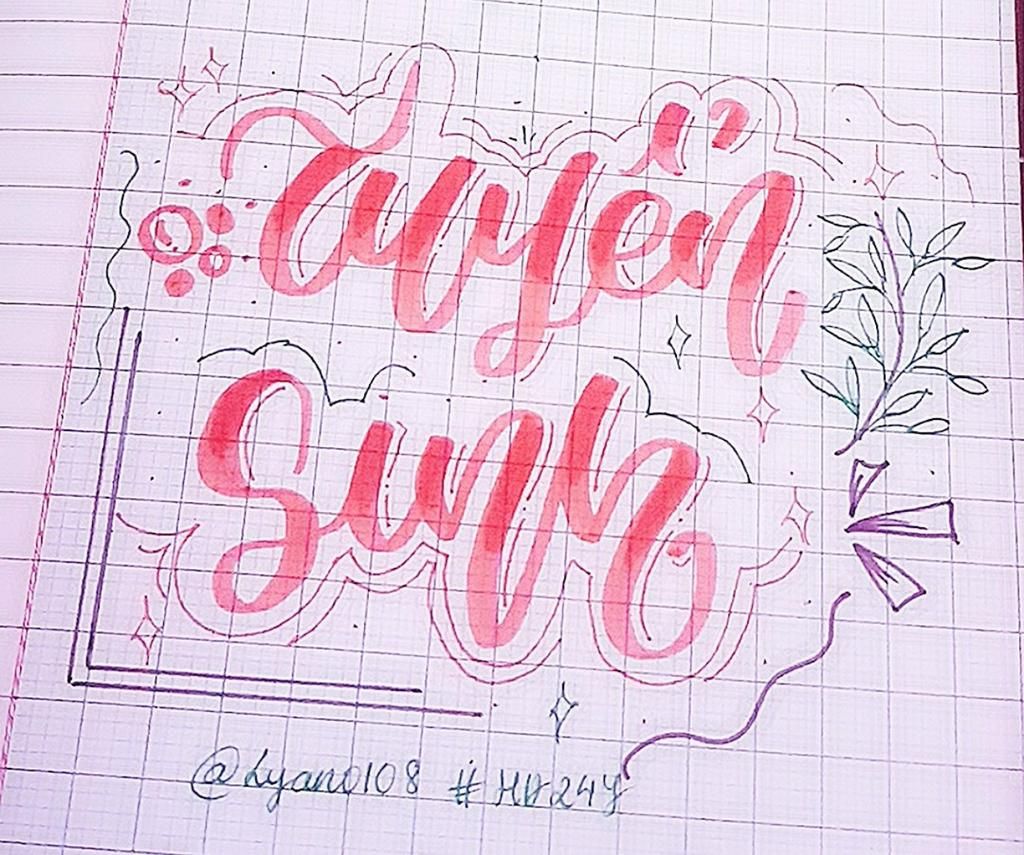 Tuyển
Sinh
@Lyan0108 #HD24Y